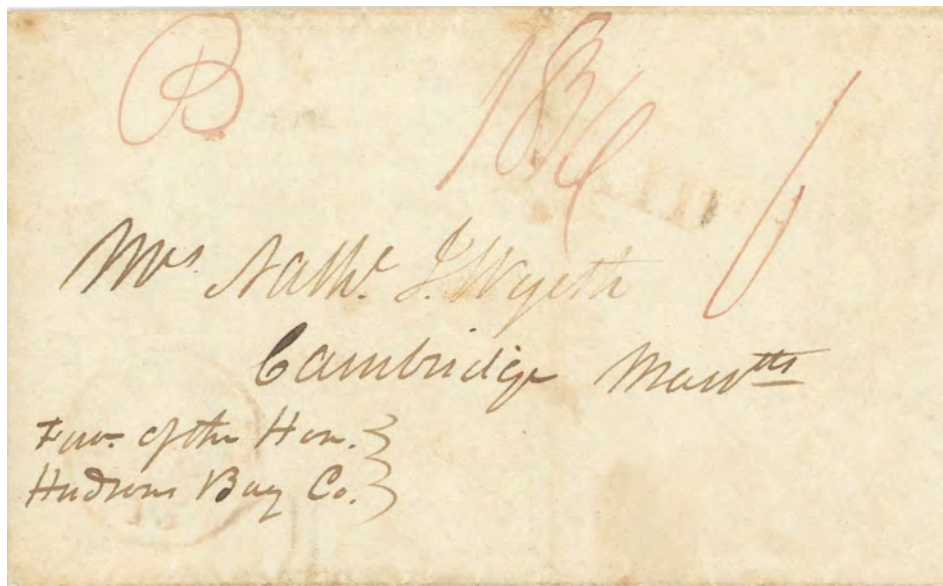 B 18¾
Mrs. Nathl. J. Wyeth
Cambridge Masstts
Favr. of the Hon.
Hudsons Bay Co.